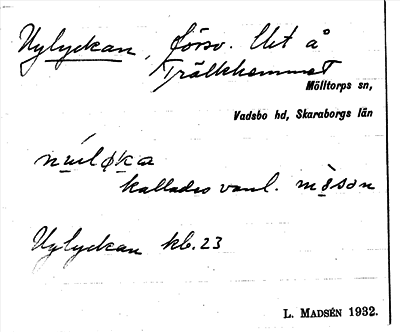 Nylyckan, försv. Het å
Trälkhemmet
Mölltorps sn,
Vadsbo hd, Skaraborgs län
kallades vanl. måsan
Nylyckan kb. 23
L. MADSÉN 1932.